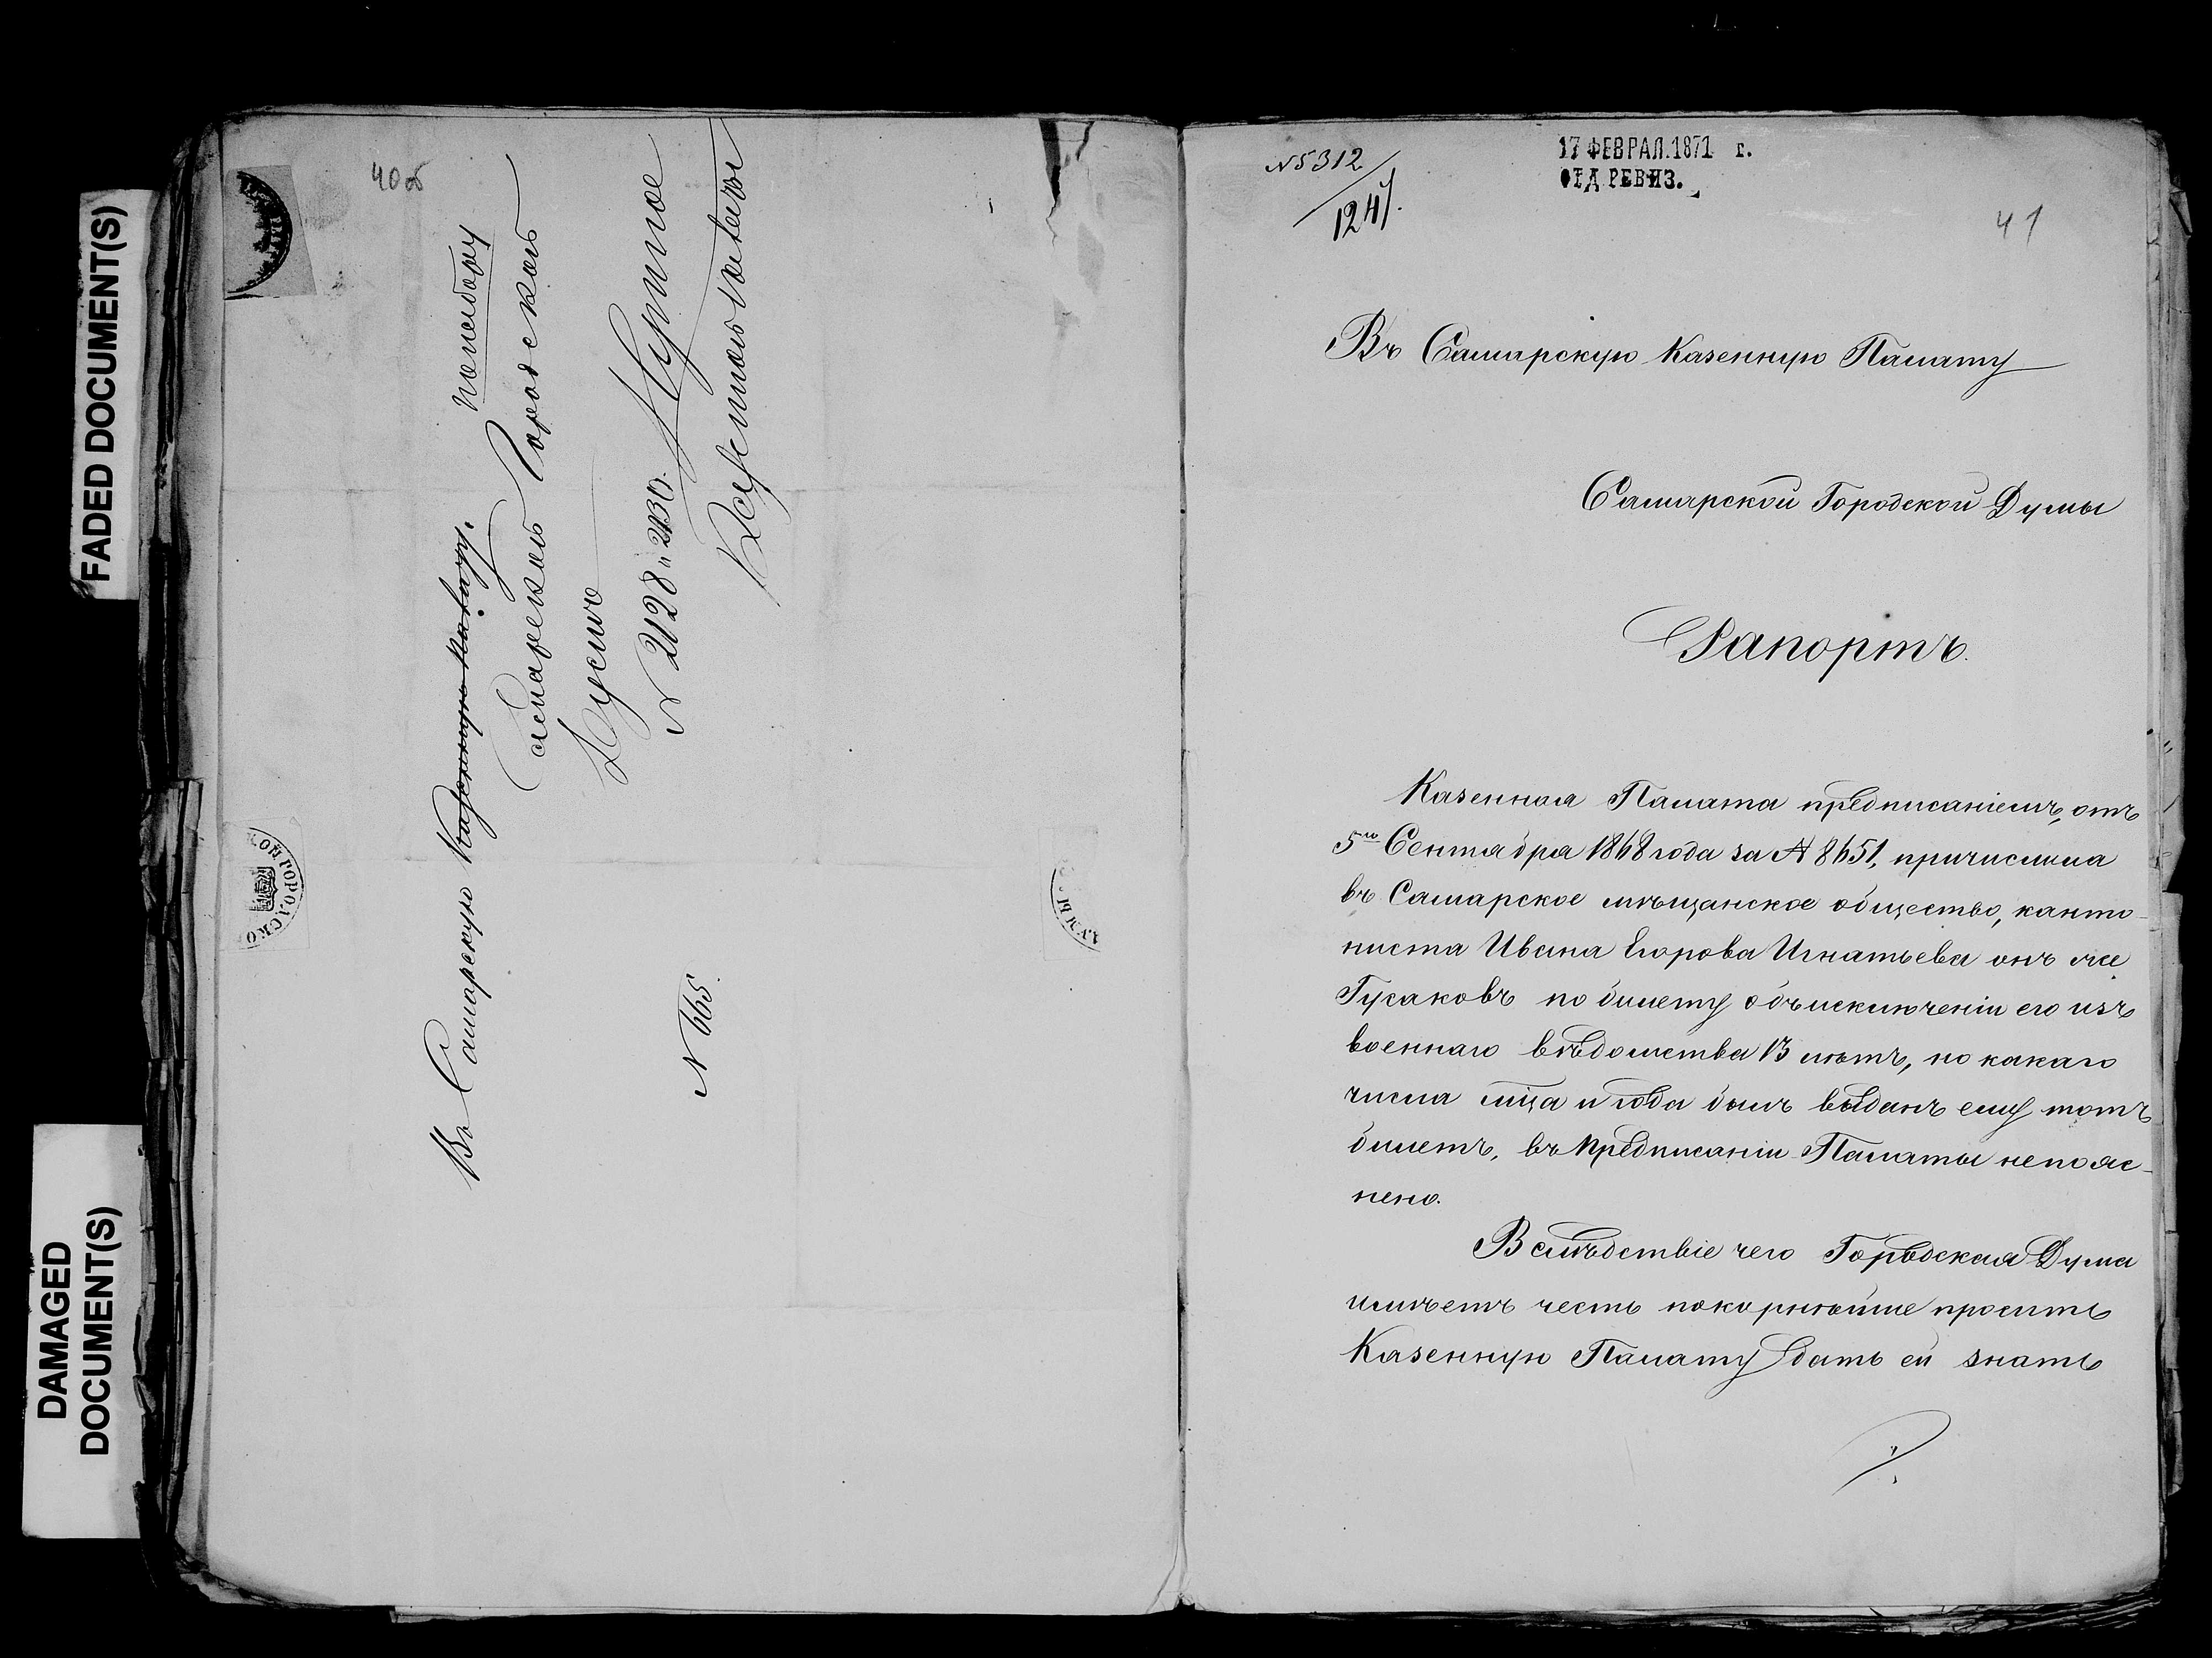 FADED DOCUMENT(S)
DAMAGED
DOCUMENT(S)
40об
Въ Самарскую Казенную Палату.
Самарской Городской
Думы
№ 2128 и 2130.
Нужное
№ 665
КОЙ ГОРОДСКО
ДУМЫ
№ 5312
1247.
17 ФЕВРАЛ. 1871 г.
ОТД РЕВИЗ.
41
Въ Самарскую Казенную Палату
Самарской Городской Думы
Рапортъ.
Казенная Палата предписаніемъ, отъ
5го Сентября 1868 года за № 8651, причислила
въ Самарское мѣщанское общество, канто-
ниста Ивана Егорова Игнатьева онъ же
Гусаковъ по билету объ исключеніи его изъ
военнаго вѣдомства 13 лѣтъ, но какаго
числа мца и года былъ выданъ ему тотъ
билетъ, въ предписаніи Палаты непояс-
нено.
Вслѣдствіе чего Городская Дума
имѣетъ честь покорнѣйше просить
Казенную Палату дать ей знать